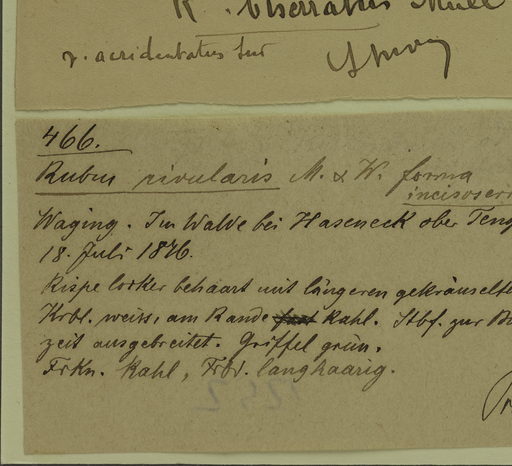 R. Müll
γ. acridentatus Sud
466.
Rubus rivularis M. & W. forma
incisoser
Waging. Im Walde bei Haseneck ober Teng
18. Juli 1876.
Rispe locker behaart mit längeren gekräuselte
Krbl. weiss, am Rande fast kahl. Stbf. zur Bl
zeit ausgebreitet. Griffel grün.
Frkn. kahl, Frbd. langhaarig.